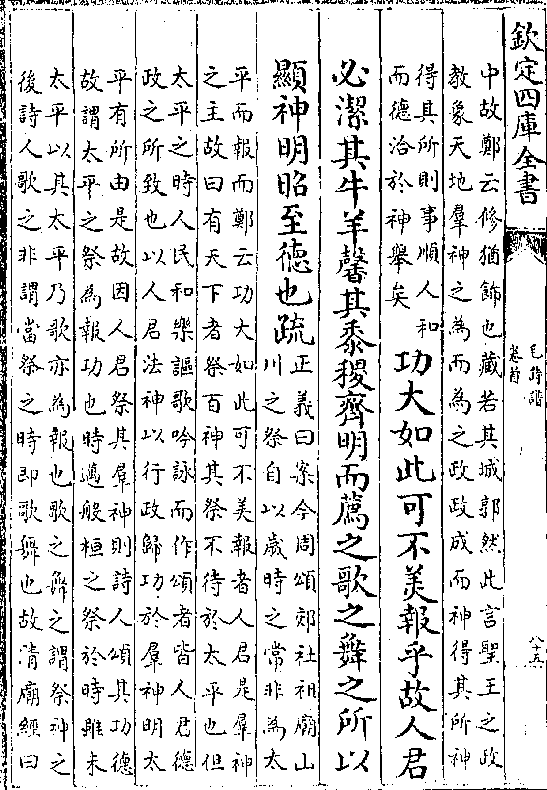 欽定四庫全書
毛詩譜
卷首
八十五
中故鄭云修猶飾也藏若其城郭然此言聖王之政
教象天地羣神之為而為之政政成而神得其所神
得其所則事順人和
而德洽於神舉矣
功大如此可不美報乎故人君
必潔其牛羊馨其黍稷齊明而薦之歌之舞之所以
顯神明昭至德也疏
正義曰案今周頌郊社祖廟山
川之祭自以歲時之常非為太
平而報而鄭云功大如此可不美報者人君是羣神
之主故曰有天下者祭百神其祭不待於太平也但
太平之時人民和樂謳歌吟詠而作頌者皆人君德
政之所致也以人君法神以行政歸功於羣神明太
平有所由是故因人君祭其羣神則詩人頌其功德
故謂太平之祭為報功也時邁般桓之祭於時雖未
太平以其太平乃歌亦為報也歌之舞之謂祭神之
後詩人歌之非謂當祭之時即歌舞也故清廟經曰